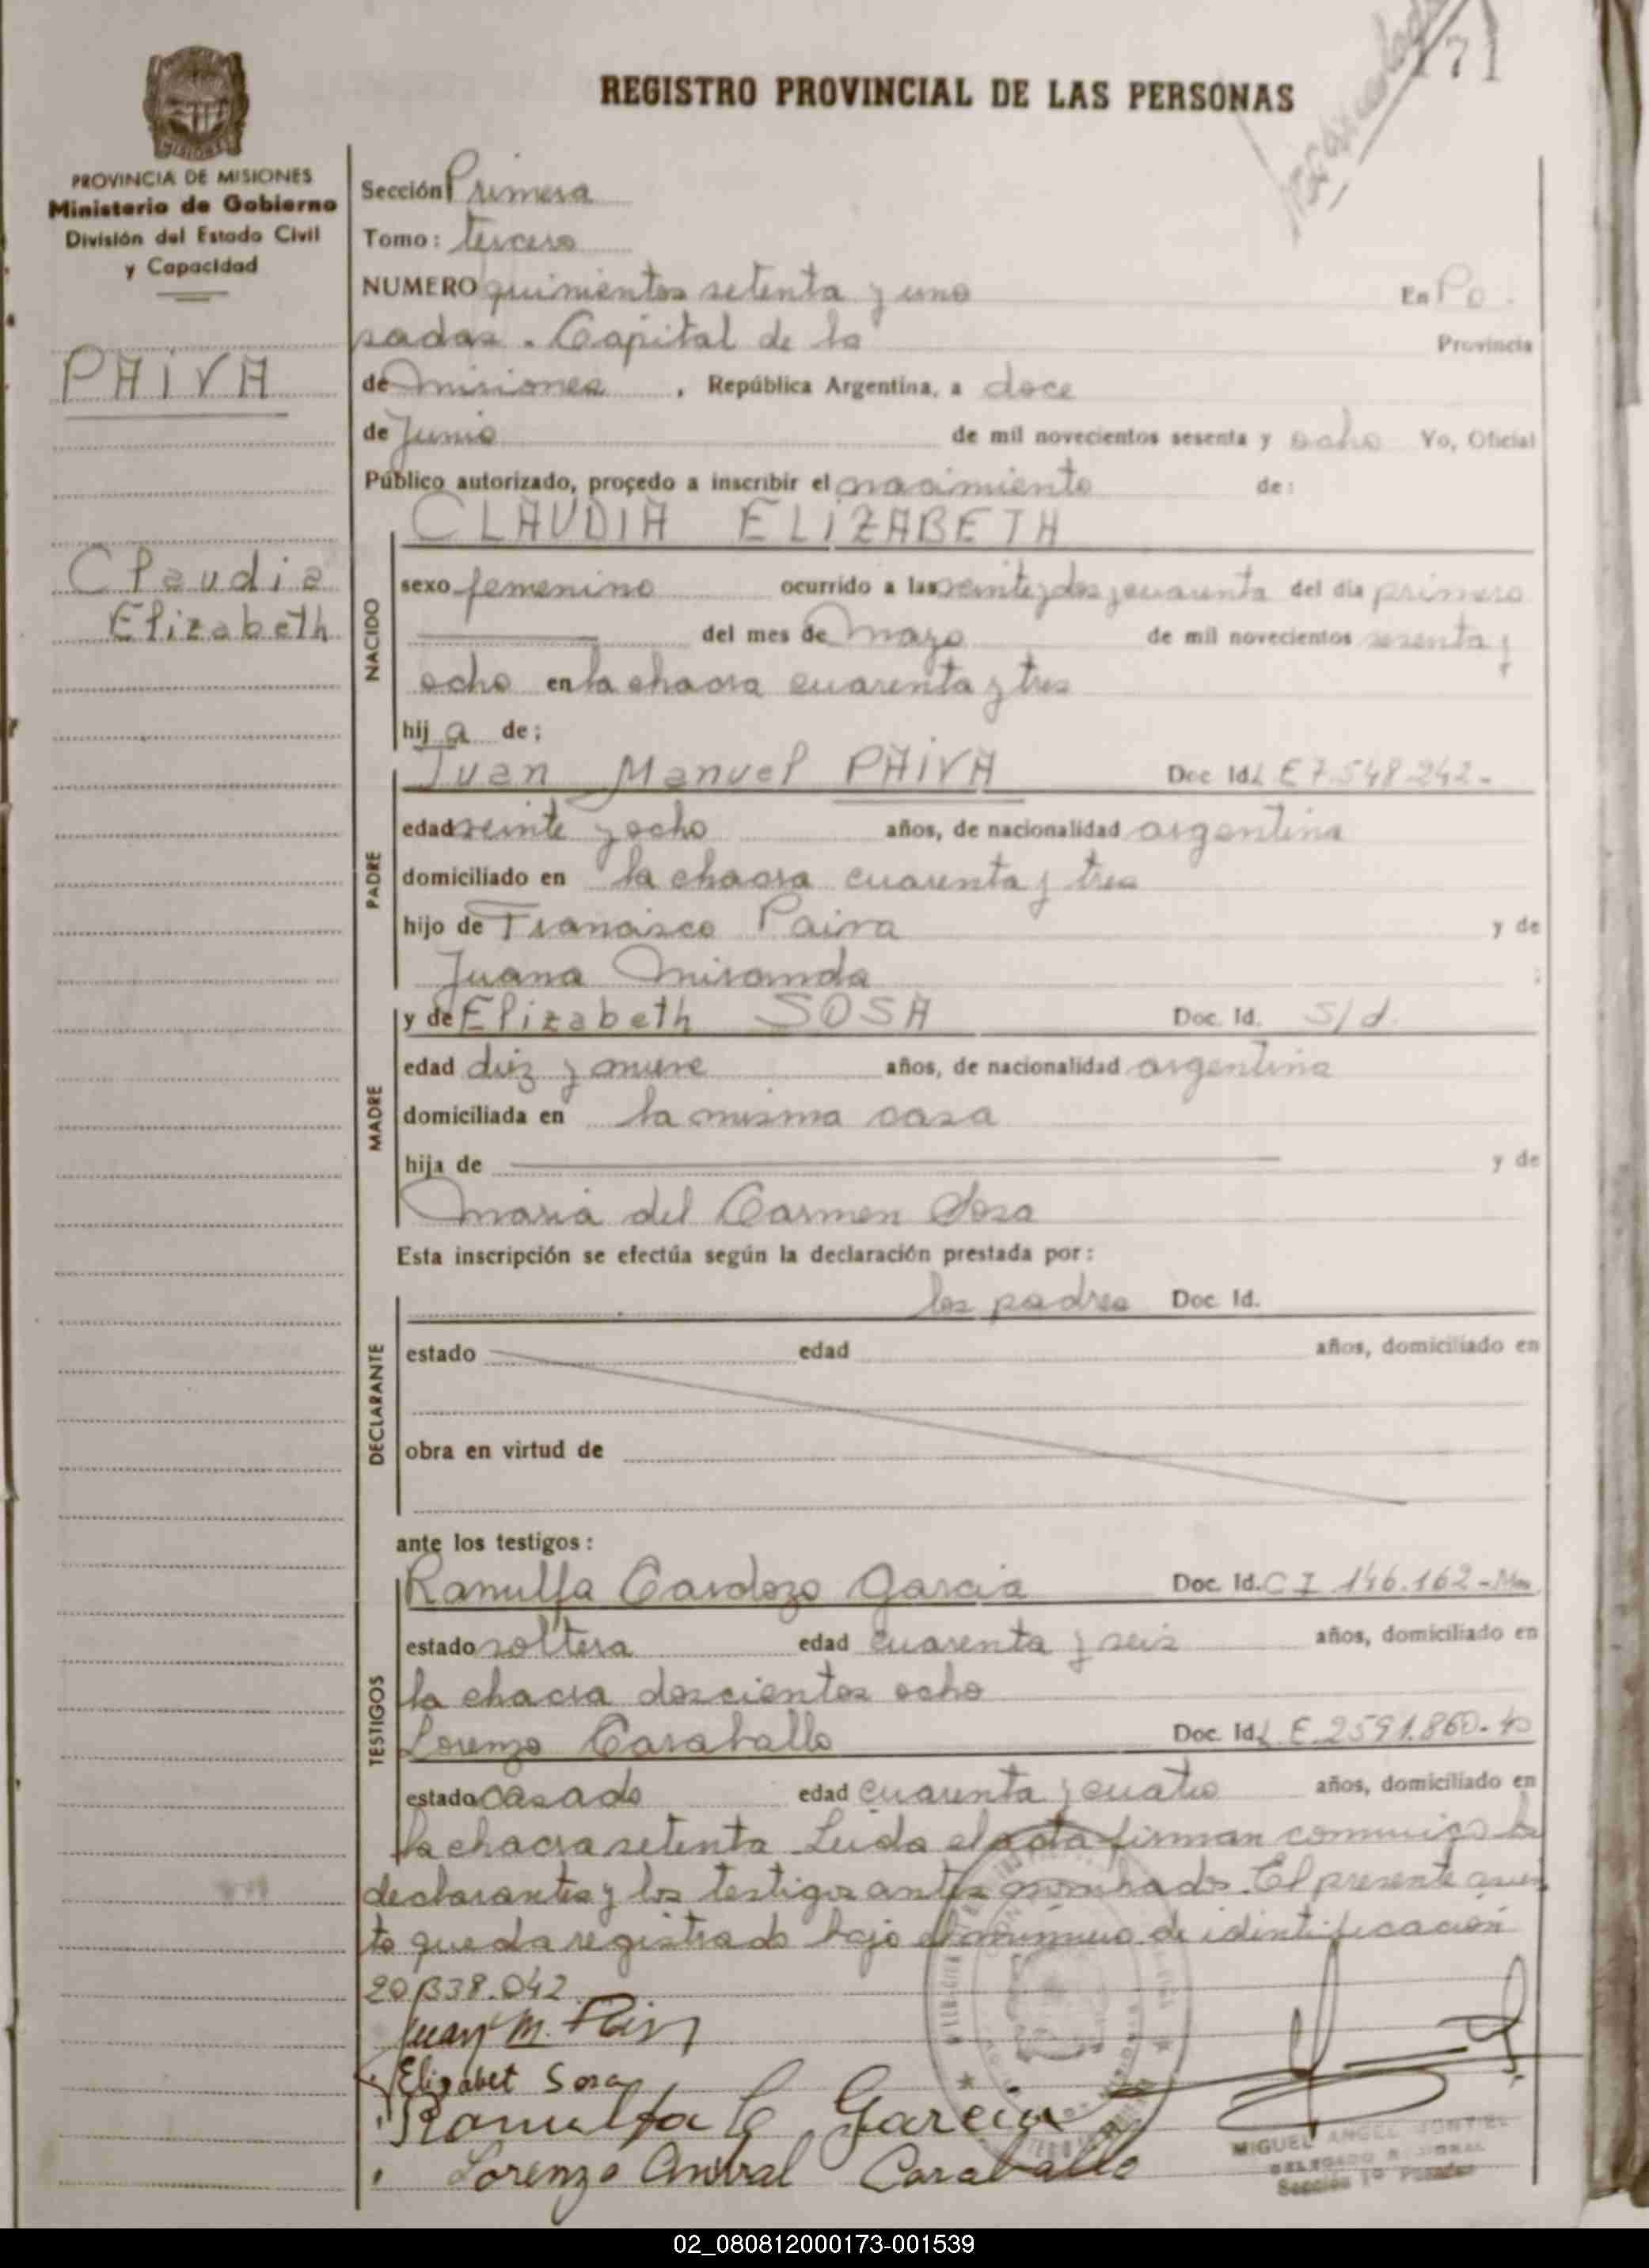 171
REGISTRO PROVINCIAL DE LAS PERSONAS
MISIONES
PROVINCIA DE MISIONES
Ministerio de Gobierno
División del Estado Civil
y Capacidad
PAIVA
Claudia
Elizabeth
Sección Primera
Tomo: tercero
NUMERO quinientos setenta y uno En Po
sadas. Capital de la Provincia
de Misiones, República Argentina, a doce
de Junio de mil novecientos sesenta y ocho Yo, Oficial
Público autorizado, procedo a inscribir el nacimiento de:
CLAUDIA ELIZABETH
NACIDO
sexo femenino ocurrido a las veinte y dos y cuarenta del día primero
del mes de Mayo de mil novecientos sesenta y
ocho en la chacra cuarenta y tres
hij a de:
Juan Manuel PAIVA Doc Id. L E 7.548.242-
PADRE
edad veinte y ocho años, de nacionalidad argentina
domiciliado en la chacra cuarenta y tres
hijo de Francisco Paiva y de
Juana Miranda
y de Elizabeth SOSA Doc. Id. S/d.
MADRE
edad diez y nueve años, de nacionalidad argentina
domiciliada en la misma casa
hija de y de
Maria del Carmen Sosa
Esta inscripción se efectúa según la declaración prestada por:
los padres Doc. Id.
DECLARANTE
estado edad años, domiciliado en
obra en virtud de
ante los testigos:
Ranulfa Cardozo Garcia Doc. Id. C I 146.162-Mns
TESTIGOS
estado soltera edad cuarenta y seis años, domiciliado en
la chacra doscientos ocho
Lorenzo Caraballo Doc. Id. L E. 2591.860-
estado casado edad cuarenta y cuatro años, domiciliado en
la chacra setenta Leida el acta firman conmigo los
declarantes y los testigos antes nombrados. El presente asien
to queda registrado bajo el número de identificación
20.338.042
Juan M. Paiva
Elizabet Sosa
Ranulfa C Garcia
Lorenzo Anibal Caraballo
MIGUEL ANGEL MONTIEL
DELEGADO REGIONAL
Sección 1º Posadas
02_080812000173-001539